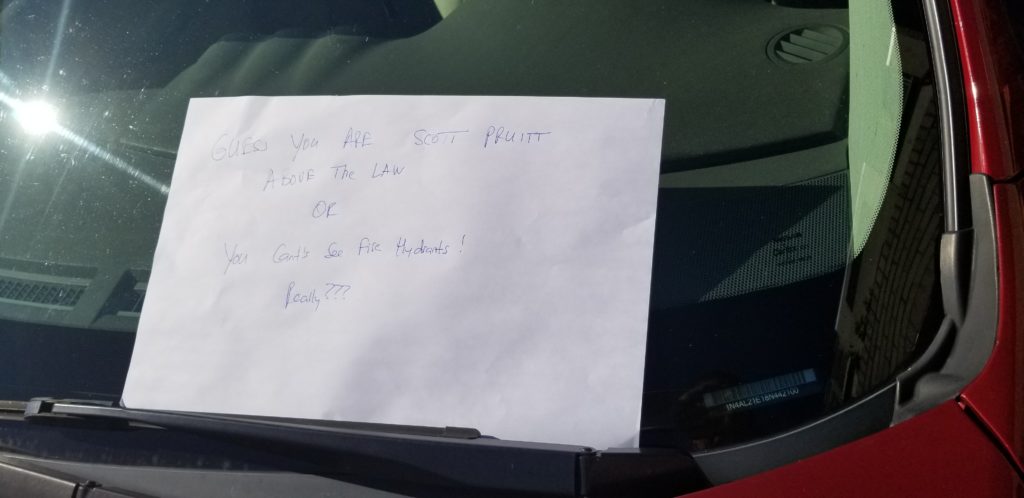 GUESS YOU ARE SCOTT PRUITT
ABOVE The LAW
OR
You Cant's See Fire Hydrants!
Really???